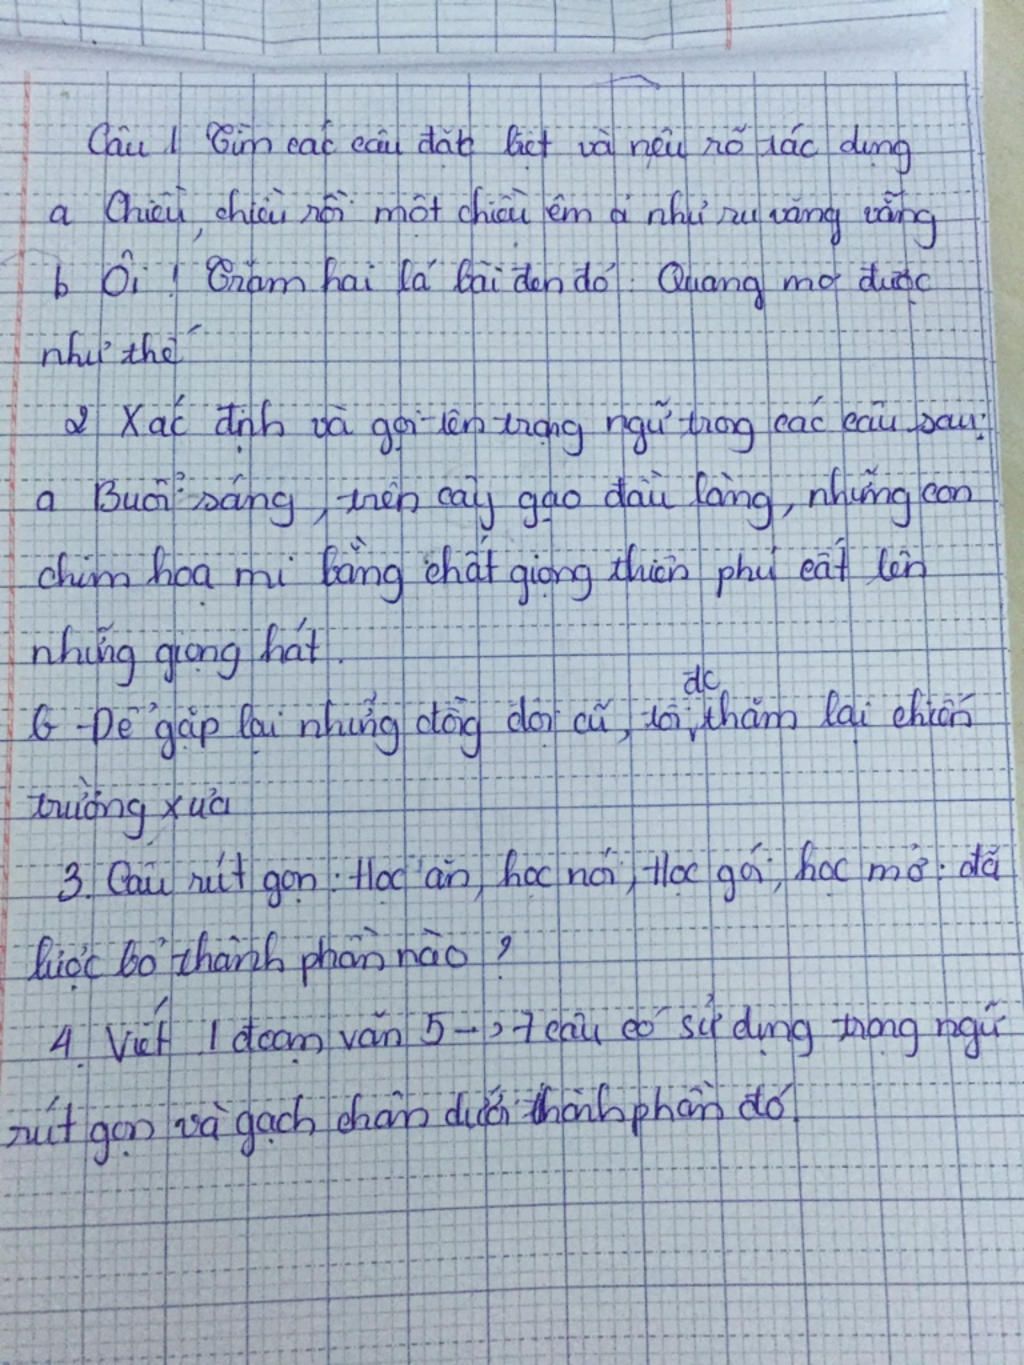 Câu 1 Tìm các câu đặc biệt và nêu rõ tác dụng
a Chiều, chiều rồi một chiều êm ả như ru văng vẳng
b Ôi ! Trăm hai lá bài đen đỏ : Quang mơ được
như thế
2 Xác định và gọi tên trạng ngữ trong các câu sau:
a Buổi sáng, trên cây gạo đầu làng, những con
chim họa mi bằng chất giọng thiên phú cất lên
những giọng hát.
b - Để gặp lại những đồng đội cũ, tôi đc thăm lại chiến
trường xưa
3. Câu rút gọn : Học ăn, học nói, Học gói, học mở : đã
lược bỏ thành phần nào ?
4. Viết 1 đoạn văn 5 -> 7 câu có sử dụng trạng ngữ
rút gọn và gạch chân dưới thành phần đó.